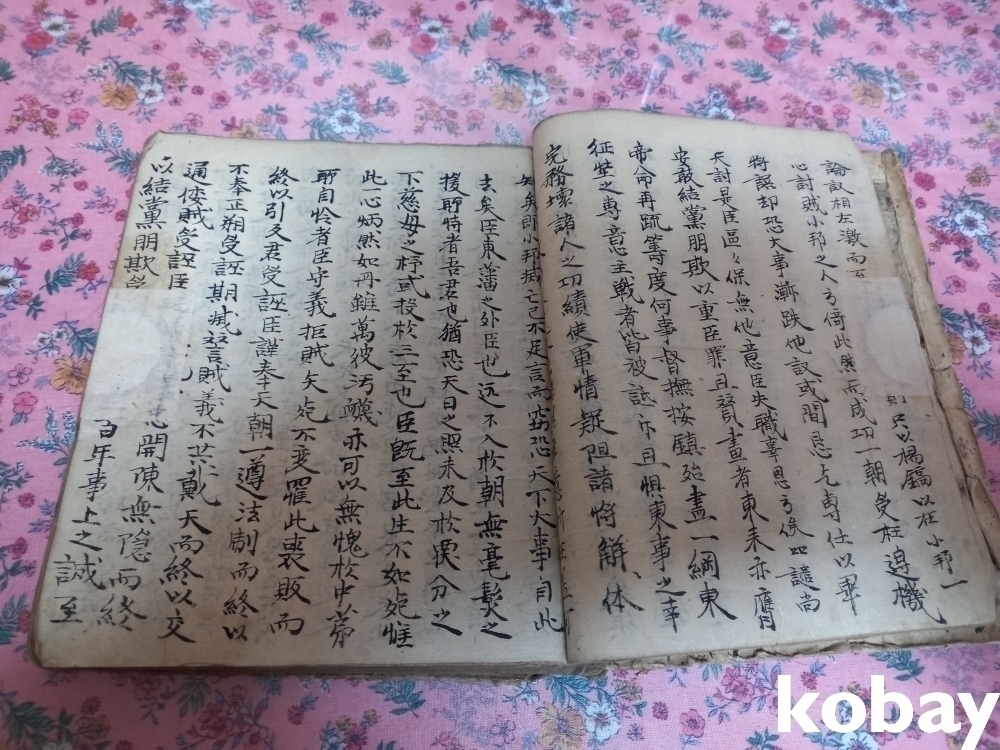 論議相左激而至 則只以稿鎬以在小邦一
心討賊小邦之人方倚此然而成功一朝受枉遑機
將誤却恐大事漸跌他議或間忌尤專任以畢
天討是臣區〻保無他意臣失職辜恩方俟如譴尚
安敢結黨朋欺以重臣罪且贊畫者東來亦膺
帝命再疏等度何事督撫按鎮殆盡一綱東
征
之專意主戰者皆被詆斥且惧東事之幸
完務壞諸人之功績使軍情疑阻諸將解体
矣即小邦滅亡已不足言而窃恐天下大事自此
去矣臣東藩之外臣也远不入於朝無毫髮之
援所恃者吾君也猶恐天日之照未及於濮分之
下慈母之杼或投於三至也臣既至此生不如死惟
此一心炳然如丹雖萬彼污衊亦可以無愧於中第
所自怜者臣守義拒賊矢死不变罹此喪敗而
終以引父君受誣臣謹奉天朝一遵法制而終以
不奉正朔受誣期滅讐賊義不共戴天而終以交
通倭賊受誣臣 悉開陳無隐而終
以結黨朋欺受 百年事上之誠至
kobay